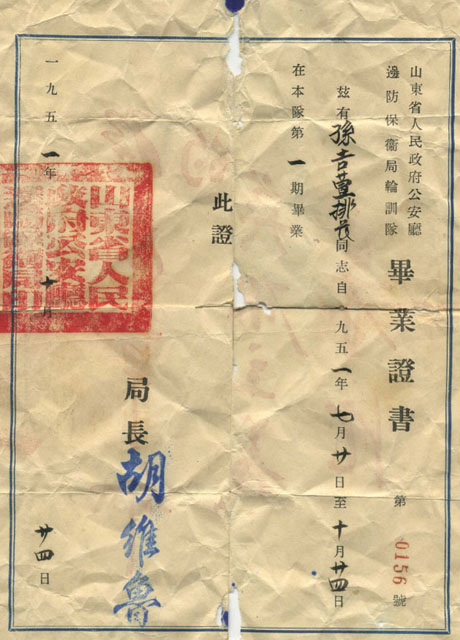 山東省人民政府公安廳
邊防保衞局輪訓隊
畢業證書
第0156號
兹有孫吉堂排長同志自一九五一年七月廿日至十月廿四日
在本隊第一期畢業
此證
局長 胡維魯
一九五一年十月廿四日
山東省人民
政府公安廳